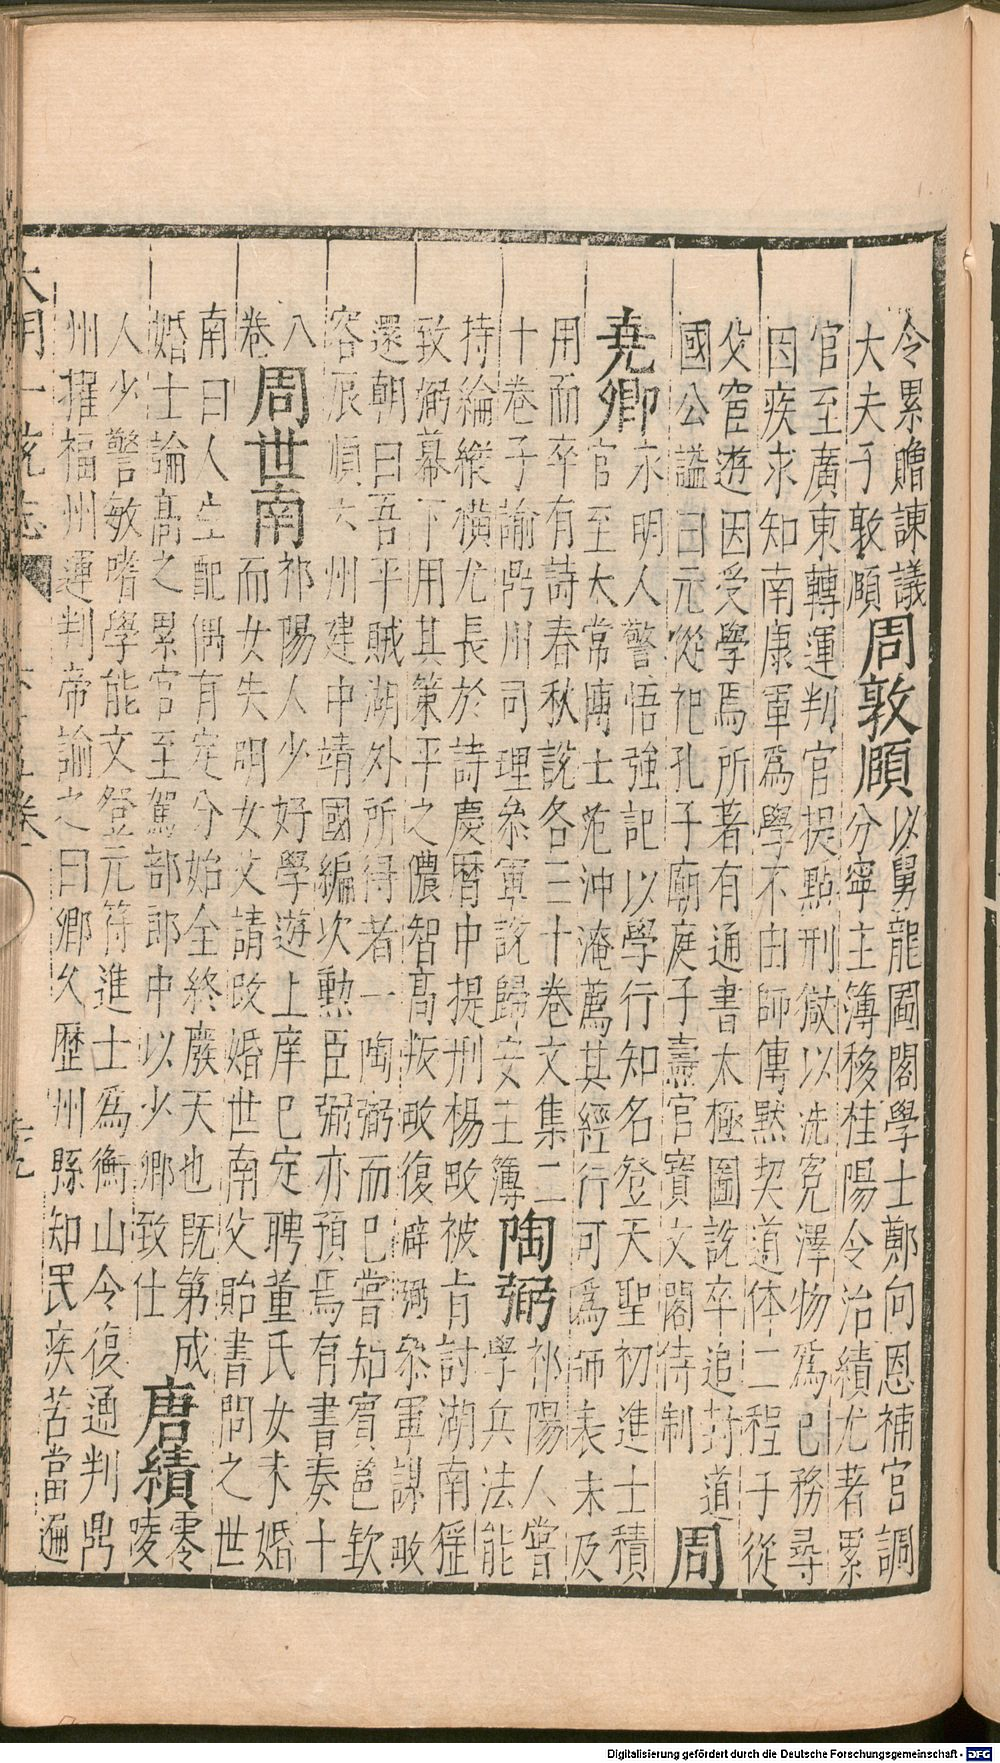 令累贈諫議
大夫子敦頤
周敦頤
以舅龍圖閣學士鄭向恩補官調
分寧主簿移桂陽令治績尤著累
官至廣東轉運判官提點刑獄以洗冤澤物爲己務尋
因疾求知南康軍爲學不由師傳默契道体二程子從
父宦遊因受學焉所著有通書太極圖說卒追封道
國公謚曰元從祀孔子廟庭子壽官寶文閣待制
周
堯卿
永明人警悟強記以學行知名登天聖初進士積
官至太常博士范沖淹薦其經行可爲師表未及
用而卒有詩春秋說各三十卷文集二
十卷子諭鼎州司理叅軍說歸安主簿
陶弼
祁陽人嘗
學兵法能
持論縱橫尤長於詩慶曆中提刑楊畋被旨討湖南猺
致弼幕下用其策平之儂智高叛畋復辟弼叅軍謀畋
還朝曰吾平賊湖外所得者一陶弼而已嘗知賓邕欽
容辰順六州建中靖國編次勲臣弼亦預焉有書奏十
八
卷
周世南
祁陽人少好學遊上庠已定聘董氏女未婚
而女失明女父請改婚世南父貽書問之世
南曰人生配偶有定分始全終廢天也既第成
婚士論高之累官至駕部郎中以少卿致仕
唐績
零
陵
人少警敏嗜學能文登元符進士爲衡山令復通判鼎
州擢福州運判帝諭之曰卿久歷州縣知民疾苦當遍
大明一統志
Digitalisierung gefördert durch die Deutsche Forschungsgemeinschaft - DFG